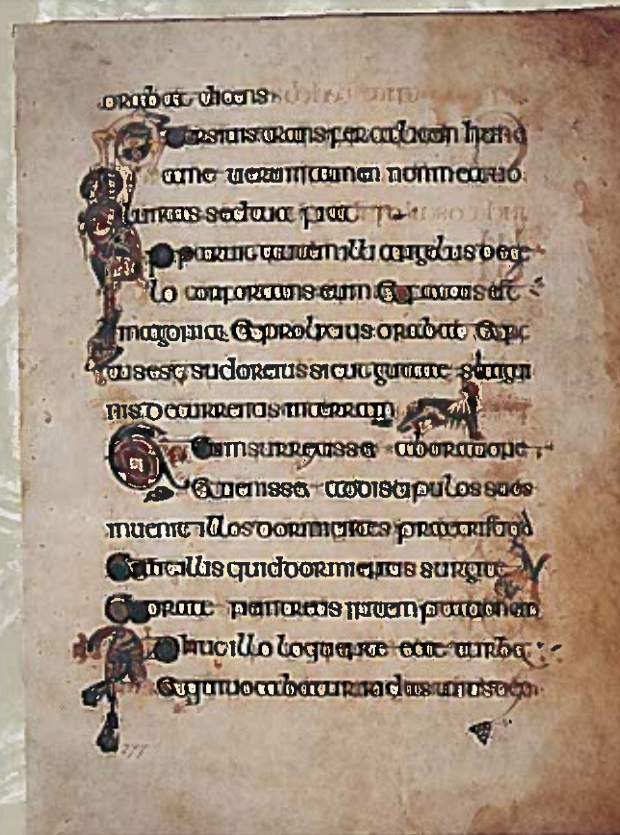 orabat dicens
hunc
ame uerumtamen nonmeauo
luntas sedtua fiat
apparuit autem illi angelus decae
lo confortans eum Et factus est
inagonia Et prolixius orabat Et fac
tusest sudoreius sicut guttae sangui
nis decurrentis interram
cumsurrexisset aboratione
Et uenisset addiscipulos suos
inuenit illos dormientes
illis quiddormitis surgite
orate
adhuc illo loquente ecce turba
Et quiuocabatur iudas unus